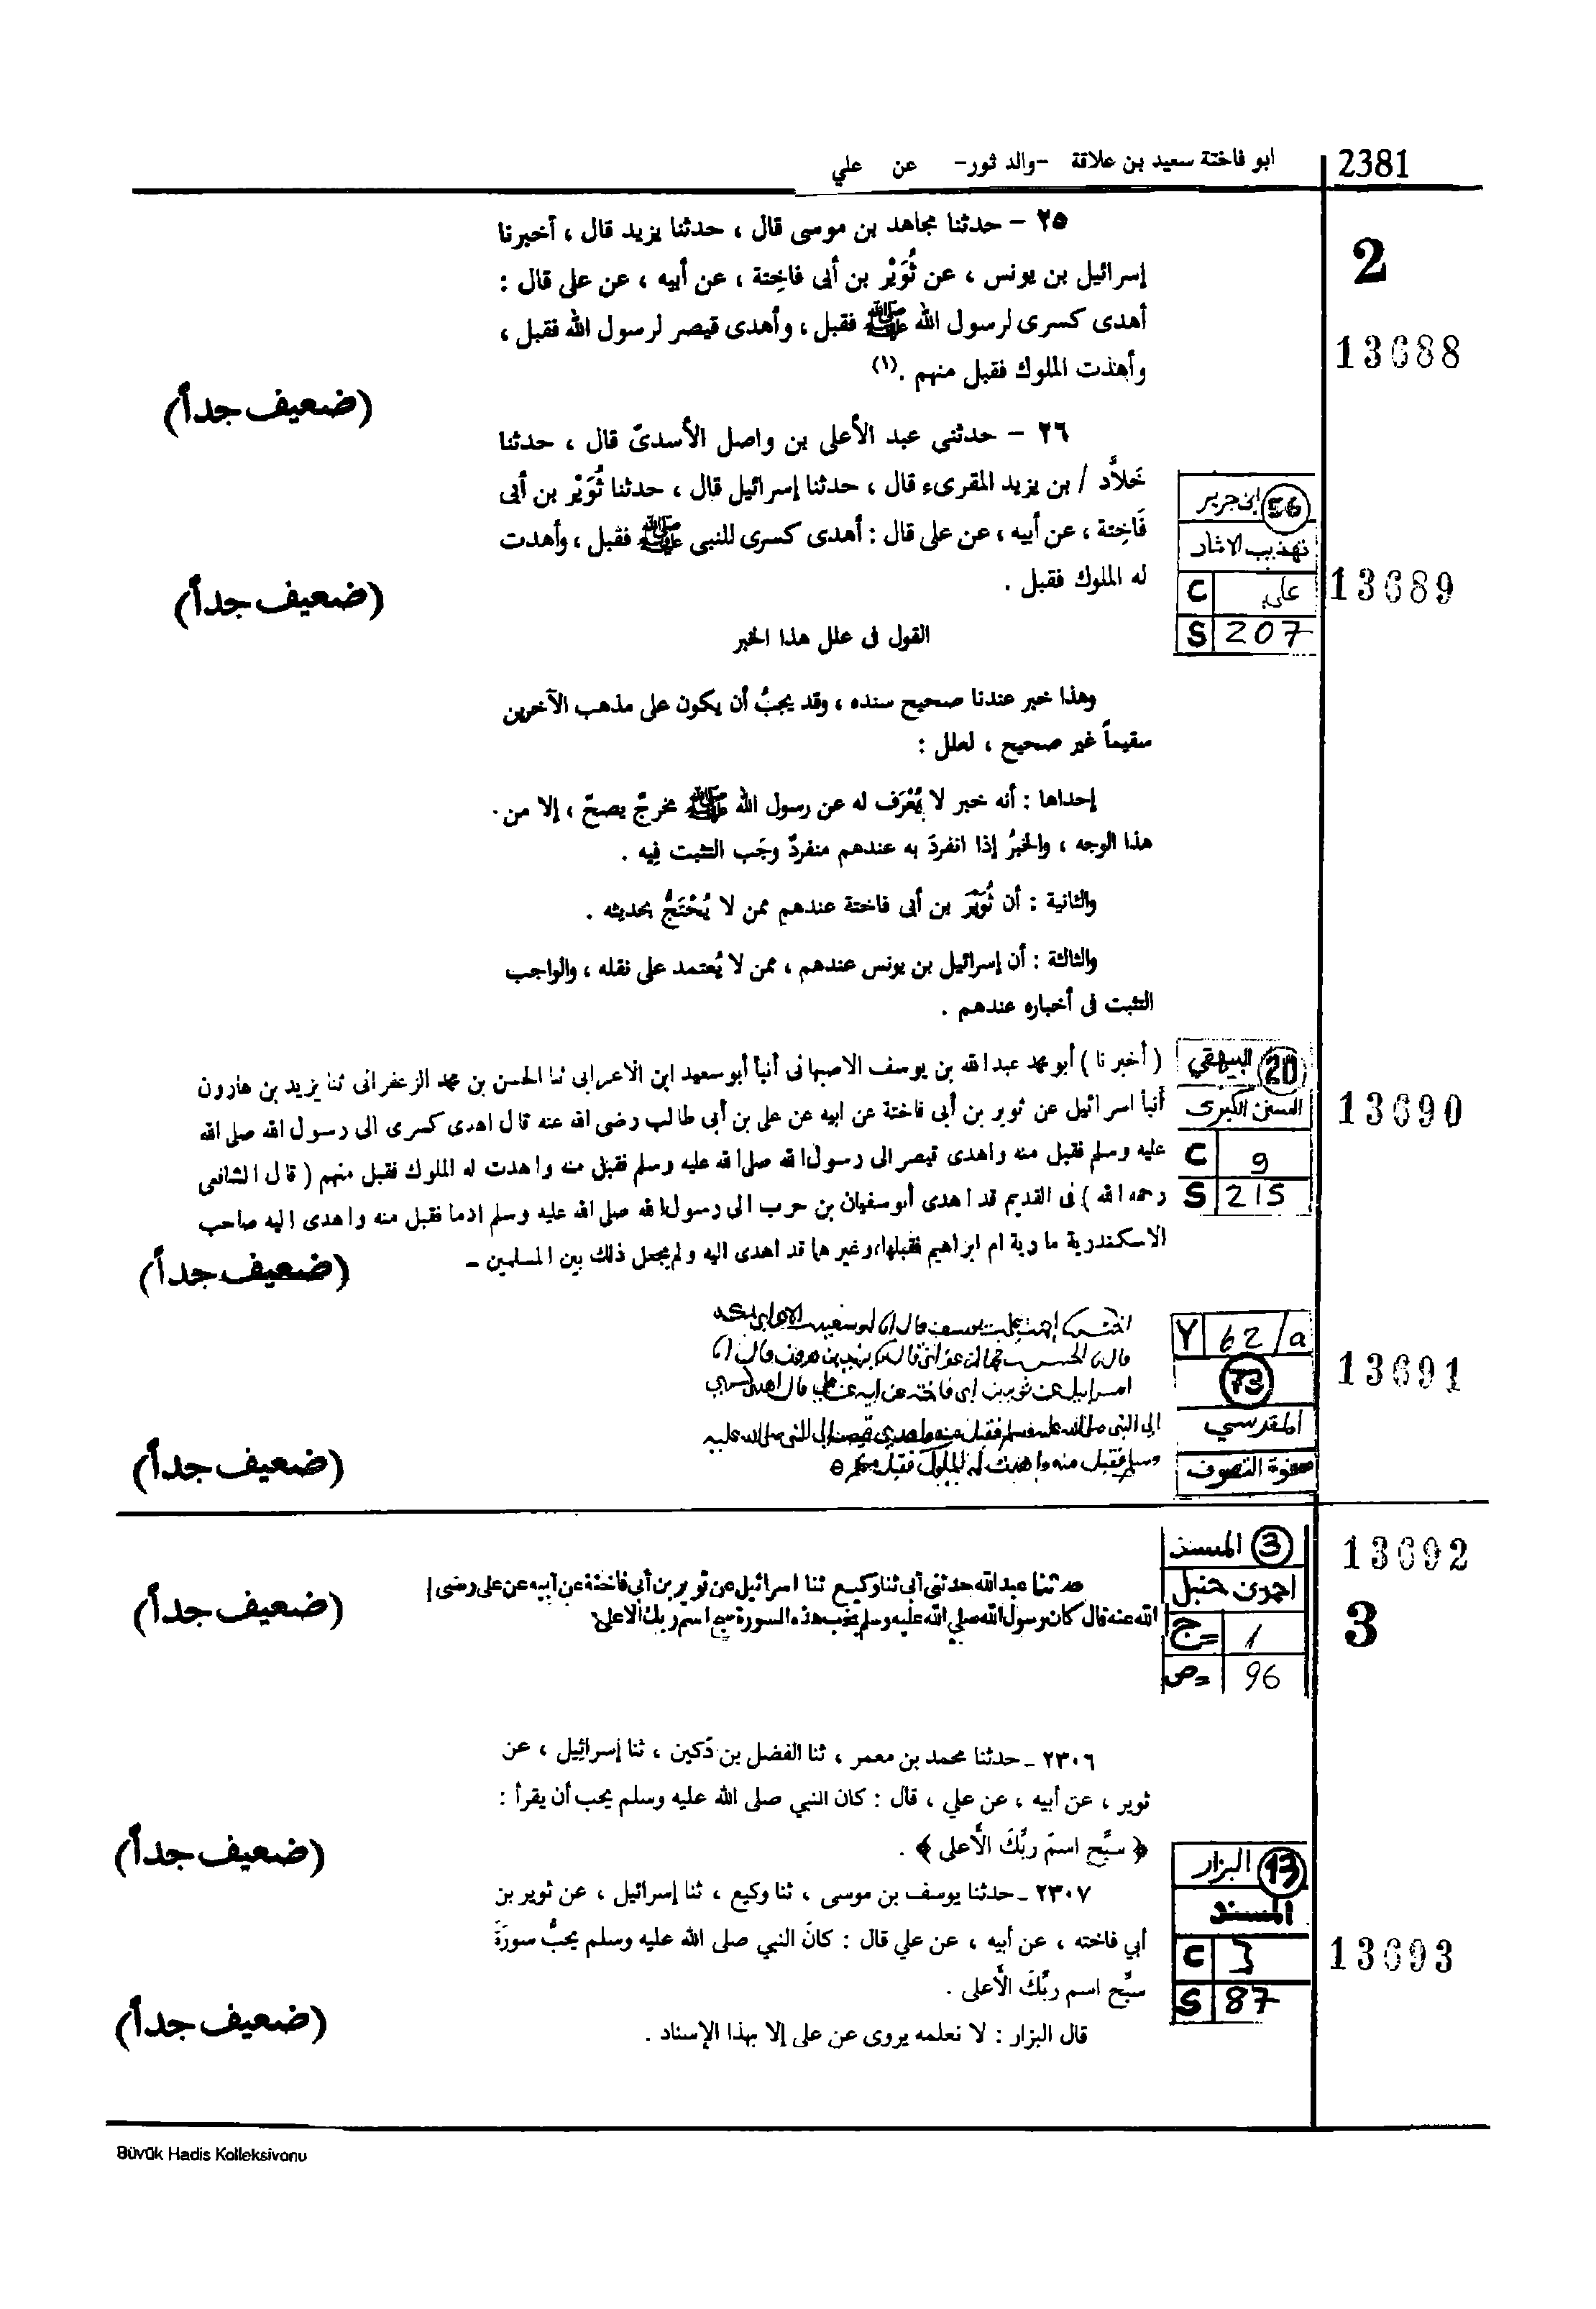 ابو فاختة سعيد بن علاقة -والد ثور- عن علي
2381
٢٥ – حدثنا مجاهد بن موسى قال ، حدثنا يزيد قال ، أخبرنا
إسرائيل بن يونس ، عن ثُوَيْر بن أبى فاخِتة ، عن أبيه ، عن على قال :
أهدى كسرى لرسول الله ﷺ فقبل ، وأهدى قيصر لرسول الله فقبل ،
وأهذت الملوك فقبل منهم .(١)
2
13688
(ضعيف جداً)
٢٦ – حدثنى عبد الأعلى بن واصل الأسدىّ قال ، حدثنا
خَلاَّد / بن يزيد المقرىء قال ، حدثنا إسرائيل قال ، حدثنا ثُوَيْر بن أبى
فَاخِتة ، عن أبيه ، عن على قال : أهدى كسرى للنبى ﷺ فقبل ، وأهدت
له الملوك فقبل .
56 ابن جرير
تهذيب الاثار
C على
S 207
13689
(ضعيف جداً)
القول فى علل هذا الخبر
وهذا خبر عندنا صحيح سنده ، وقد يجبُ أن يكون على مذهب الآخرين
سقيماً غير صحيح ، لعلل :
إحداها : أنه خبر لا يُعْرَف له عن رسول الله ﷺ مخرجٌ يصحّ ، إلا من
هذا الوجه ، والخبرُ إذا انفردَ به عندهم منفردٌ وجَب التثبت فِيه .
والثانية : أن ثُوَيْرَ بن أبى فاختة عندهم ممن لا يُحْتَجُّ بحديثه .
والثالثة : أن إسرائيل بن يونس عندهم ، ممن لا يُعتمد على نقله ، والواجب
التثبت فى أخباره عندهم .
( أخبرنا ) أبو محمد عبد الله بن يوسف الاصبهانى أنبأ أبو سعيد ابن الاعرابى ثنا الحسن بن محمد الزعفرانى ثنا يزيد بن هارون
أنبأ اسرائيل عن ثوير بن أبى فاختة عن ابيه عن على بن أبى طالب رضى الله عنه قال اهدى كسرى الى رسول الله صلى الله
عليه وسلم فقبل منه واهدى قيصر الى رسول الله صلى الله عليه وسلم فقبل منه واهدت له الملوك فقبل منهم ( قال الشافعى
رحمه الله ) فى القديم قد اهدى أبو سفيان بن حرب الى رسول الله صلى الله عليه وسلم ادما فقبل منه واهدى اليه صاحب
الاسكندرية مارية ام ابراهيم فقبلها، وغيرهما قد اهدى اليه ولم يجعل ذلك بين المسلمين –
20 البيهقي
السنن الكبرى
C 9
S 215
13690
(ضعيف جداً)
اسرايل عن ثوير بن ابى فاخته عن ابيه عن على قال اهدى كسرى
الى النبى صلى الله عليه وسلم فقبل منه واهدى قيصر الى النبى صلى الله عليه
وسلم فقبل منه واهدت له الملوك فقبل منهم ه
Y 62/a
73
المقدسي
صفوة التصوف
13691
(ضعيف جداً)
حدثنا عبد الله حدثنى أبى ثنا وكيع ثنا اسرائيل عن ثوير بن أبى فاختة عن أبيه عن على رضى
الله عنه قال كان رسول الله صلي الله عليه وسلم يحب هذه السورة سبح اسم ربك الاعلى
3 المسند
احمد بن حنبل
ج= 1
ص= 96
13692
3
(ضعيف جداً)
٢٣٠٦ ـ حدثنا محمد بن معمر ، ثنا الفضل بن دَكين ، ثنا إسرائيل ، عن
ثوير ، عن أبيه ، عن علي ، قال : كان النبي صلى الله عليه وسلم يحب أن يقرأ :
﴿ سبَّح اسمَ ربِّكَ الأَعلى ﴾ .
(ضعيف جداً)
٢٣٠٧ ـ حدثنا يوسف بن موسى ، ثنا وكيع ، ثنا إسرائيل ، عن ثوير بن
أبي فاخته ، عن أبيه ، عن علي قال : كانَ النبي صلى الله عليه وسلم يحبُّ سورَةَ
سبَّح اسم ربِّكَ الأَعلى .
قال البزار : لا نعلمه يروى عن على إلا بهذا الإسناد .
13 البزار
المسند
C 3
S 87
13693
(ضعيف جداً)
Büyük Hadis Kolleksiyonu